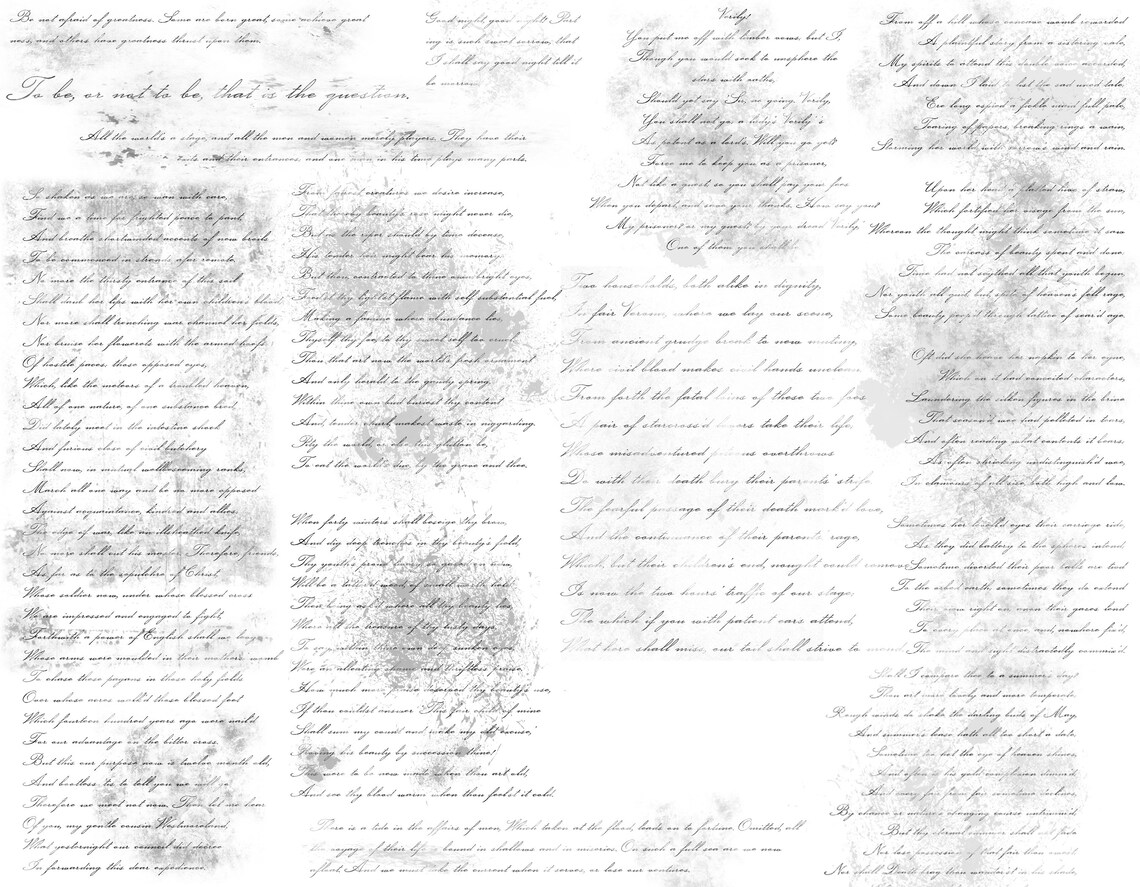 Be not afraid of greatness. Some are born great, some achieve great
ness, and others have greatness thrust upon them.
Good night, good night! Part
ing is such sweet sorrow, that
I shall say good night till it
be morrow.
To be, or not to be, that is the question.
All the world's a stage, and all the men and women merely players. They have their
exits and their entrances, and one man in his time plays many parts.
So shaken as we are, so wan with care,
Find we a time for frighted peace to pant,
And breathe shortwinded accents of new broils
To be commenced in stronds afar remote.
No more the thirsty entrance of this soil
Shall daub her lips with her own children's blood
Nor more shall trenching war channel her fields,
Nor bruise her flowerets with the armed hoofs
Of hostile paces: those opposed eyes,
Which, like the meteors of a troubled heaven,
All of one nature, of one substance bred,
Did lately meet in the intestine shock
And furious close of civil butchery
Shall now, in mutual wellbeseeming ranks,
March all one way and be no more opposed
Against acquaintance, kindred and allies.
The edge of war, like an illsheathed knife,
No more shall cut his master. Therefore, friends,
As far as to the sepulchre of Christ,
Whose soldier now, under whose blessed cross
We are impressed and engaged to fight,
Forthwith a power of English shall we
Whose arms were moulded in their mothers' womb
To chase these pagans in those holy fields
Over whose acres walk'd those blessed feet
Which fourteen hundred years ago were nail'd
For our advantage on the bitter cross.
But this our purpose now is twelve month old,
And bootless 'tis to tell you we will go
Therefore we meet not now. Then let me hear
Of you, my gentle cousin Westmoreland,
What yesternight our council did decree
In forwarding this dear expedience.
From fairest creatures we desire increase,
That thereby beauty's rose might never die,
But as the riper should by time decease,
His tender heir might bear his memory
But thou contracted to thine own bright eyes,
Feed'st thy light's flame with self substantial fuel,
Making a famine where abundance lies,
Thyself thy foe, to thy sweet self too cruel
Thou that art now the world's fresh ornament
And only herald to the gaudy spring,
Within thine own bud buriest thy content
And tender churl makest waste in niggarding.
Pity the world, or else this glutton be,
To eat the world's due, by the grave and thee.
When forty winters shall beseige thy brow,
And dig deep trenches in thy beauty's field,
Thy youth's proud livery so gazed on now,
Will be a tatter'd weed of small worth held
Then being ask'd where all thy beauty lies
Where all the treasure of thy lusty days
To say, within thine own deep sunken eyes
Were an alleating shame and thriftless praise.
How much more praise deserved thy beauty's use,
If thou couldst answer 'This fair child of mine
Shall sum my count and make my old excuse,'
Proving his beauty by succession thine!
This were to be new made when thou art old,
And see thy blood warm when thou feel'st it cold.
There is a tide in the affairs of men, Which taken at the flood, leads on to fortune. Omitted, all
the voyage of their life is bound in shallows and in miseries. On such a full sea are we now
afloat. And we must take the current when it serves, or lose our ventures.
Verily!
You put me off with limber vows, but I,
Though you would seek to unsphere the
stars with oaths,
Should yet say 'Sir, no going.' Verily,
You shall not go: a lady's 'Verily' 's
As potent as a lord's. Will you go yet?
Force me to keep you as a prisoner,
Not like a guest, so you shall pay your fees
When you depart, and save your thanks. How say you?
My prisoner? or my guest? by your dread 'Verily,'
One of them you shall be.
Two households, both alike in dignity,
In fair Verona, where we lay our scene,
From ancient grudge break to new mutiny,
Where civil blood makes civil hands unclean.
From forth the fatal loins of these two foes
A pair of starcross'd lovers take their life,
Whose misadventured piteous overthrows
Do with their death bury their parents' strife.
The fearful passage of their death mark'd love,
And the continuance of their parents' rage,
Which, but their children's end, nought could remove
Is now the two hours' traffic of our stage,
The which if you with patient ears attend,
What here shall miss, our toil shall strive to
From off a hill whose concave womb reworded
A plaintful story from a sistering vale,
My spirits to attend this double voice accorded,
And down I laid to list the sad tuned tale.
Ere long espied a fickle maid full pale,
Tearing of papers, breaking rings a twain,
Storming her world with sorrow's wind and rain.
Upon her head a platted hive of straw,
Which fortified her visage from the sun,
Whereon the thought might think sometime it saw
The carcass of beauty spent and done.
Time had not scythed all that youth begun,
Nor youth all quit but, spite of heaven's fell rage,
Some beauty peep'd through lattice of sear'd age.
Oft did she heave her napkin to her eyne,
Which on it had conceited characters,
Laundering the silken figures in the brine
That season'd woe had pelleted in tears,
And often reading what contents it bears.
As often shrieking undistinguish'd woe,
In clamours of all size, both high and low.
Sometimes her levell'd eyes their carriage ride,
As they did battery to the spheres intend
Sometime diverted their poor balls are tied
To the orbed earth, sometimes they do extend
Their view right on, anon their gazes lend
To every place at once, and, nowhere fix'd,
The mind and sight distractedly commix'd.
Shall I compare thee to a summer's day?
Thou art more lovely and more temperate.
Rough winds do shake the darling buds of May,
And summer's lease hath all too short a date.
Sometime too hot the eye of heaven shines,
And often is his gold complexion dimm'd
And every fair from fair sometime declines,
By chance or nature's changing course untrimm'd,
But thy eternal summer shall not fade
Nor lose possession of that fair thou owest
Nor shall Death brag thou wander'st in his shade,